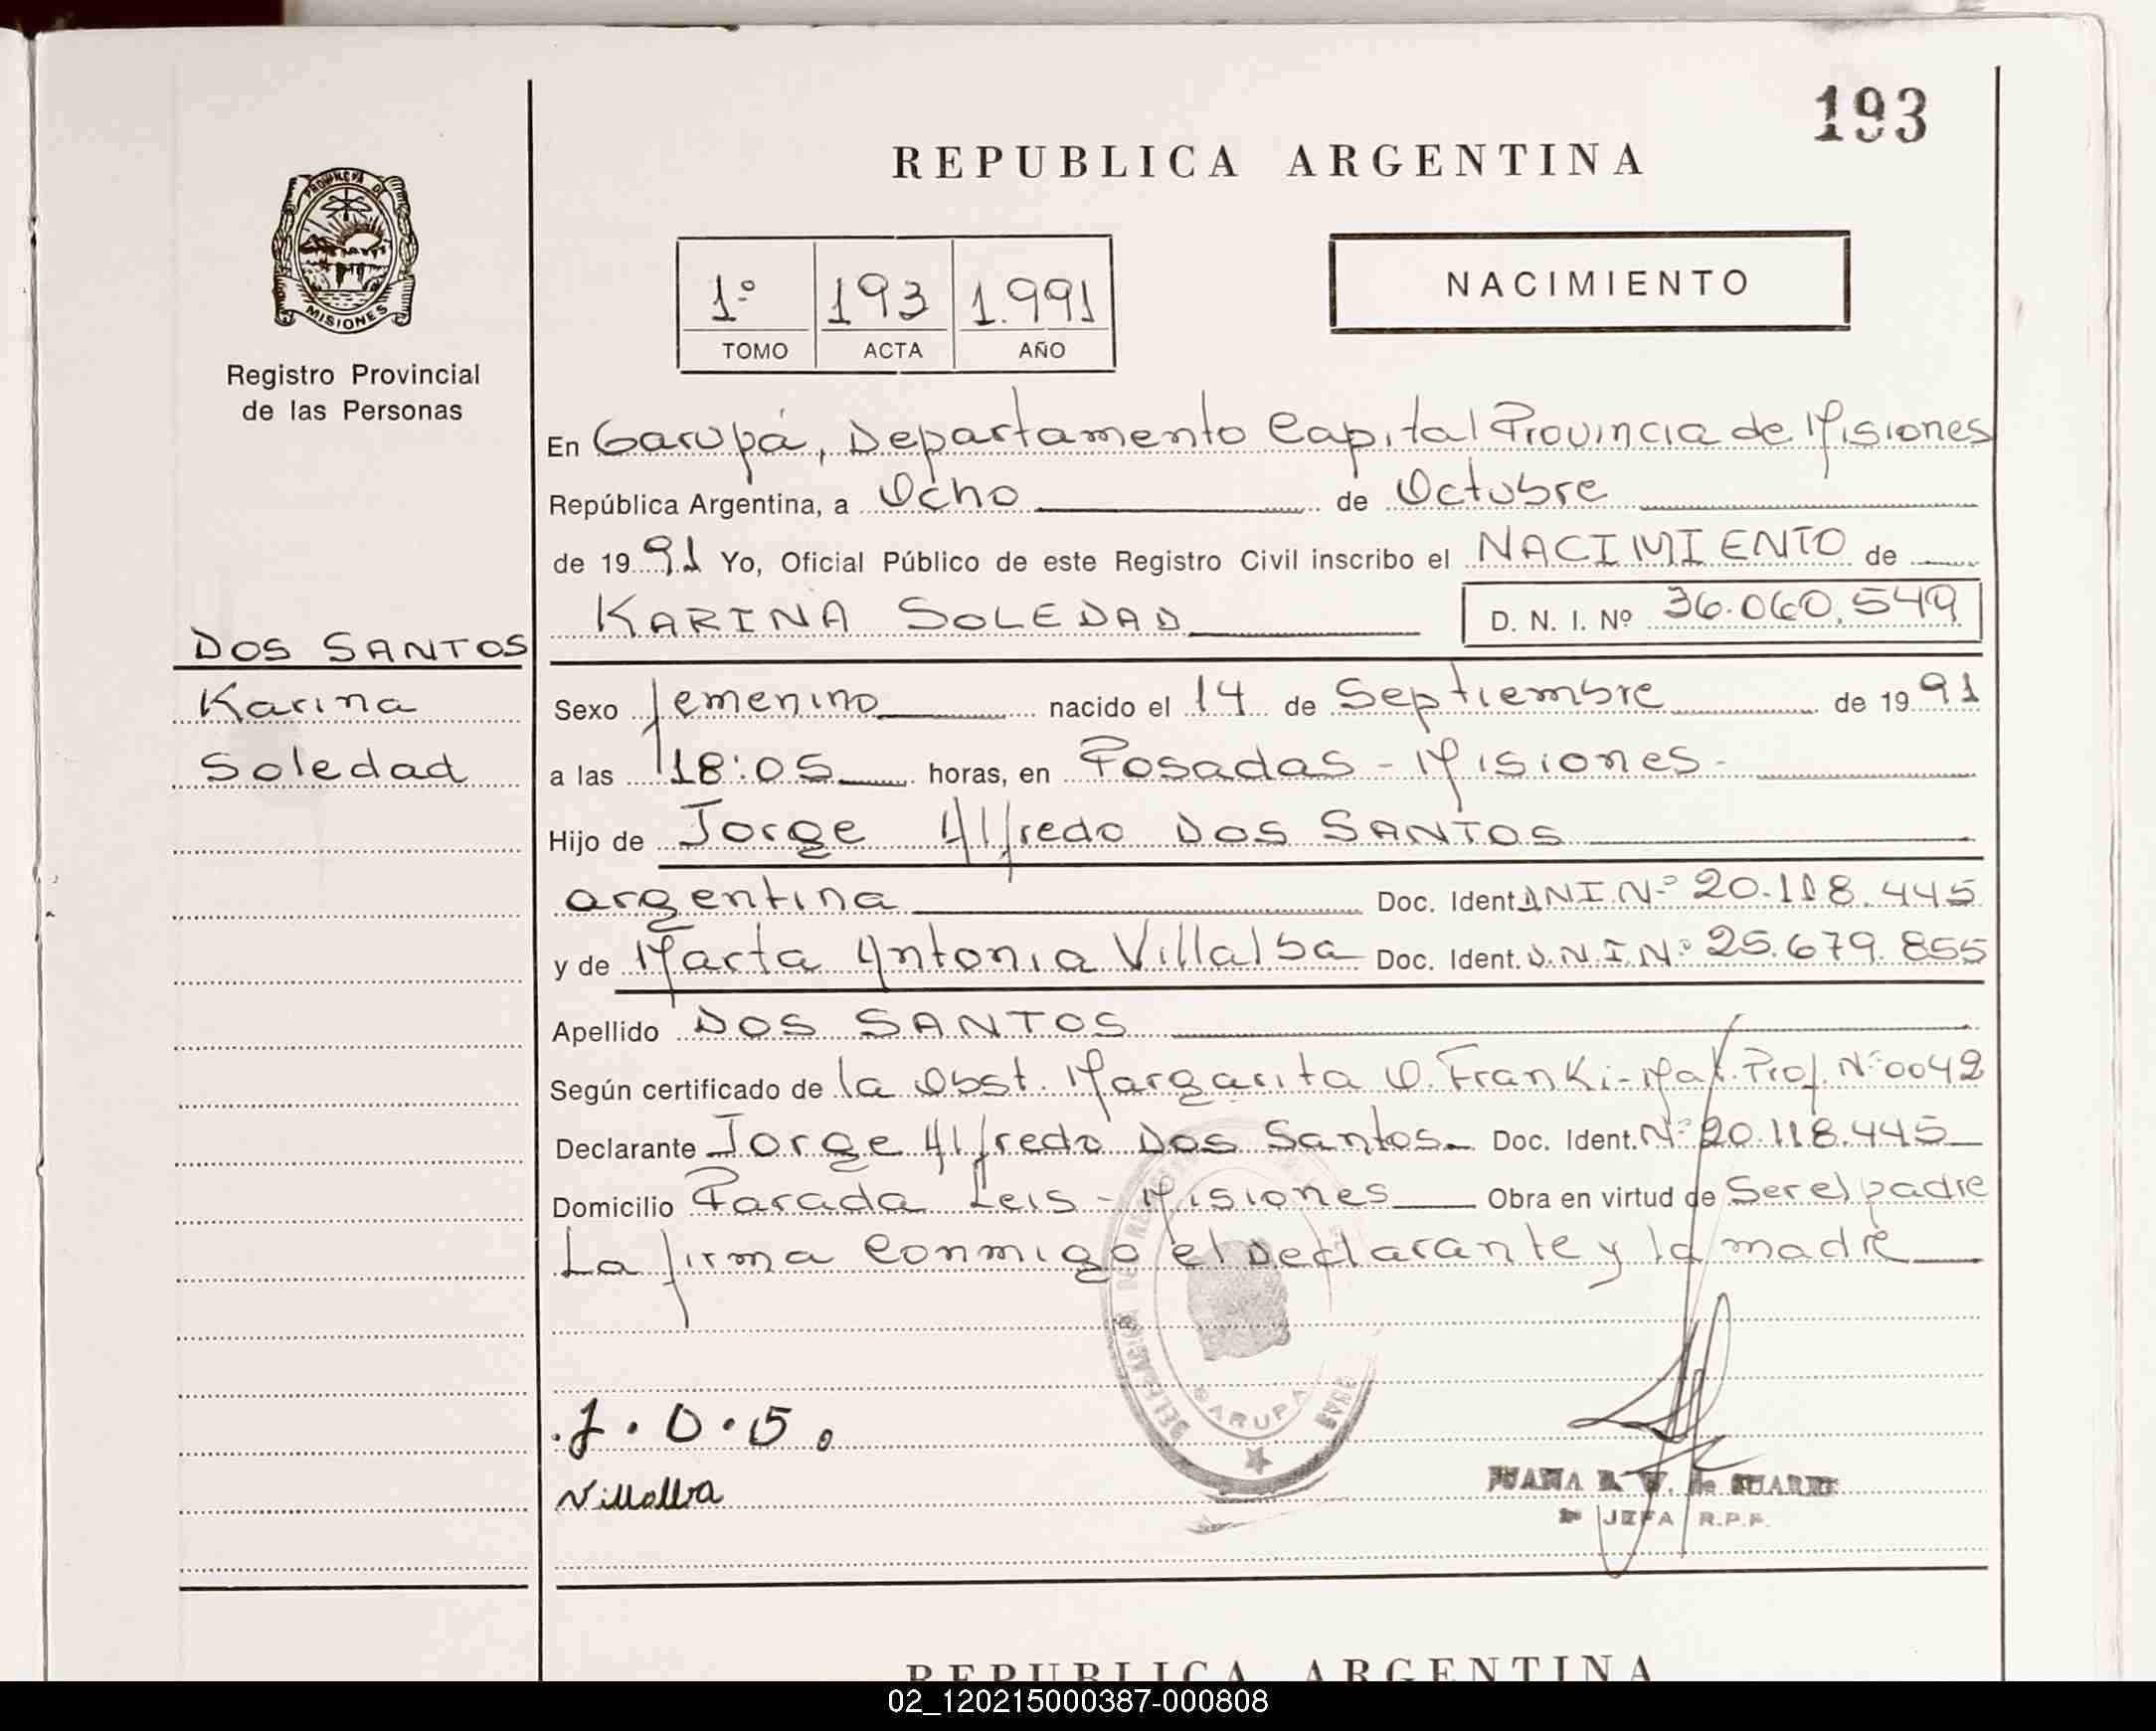 193
REPUBLICA ARGENTINA
PROVINCIA DE
MISIONES
Registro Provincial
de las Personas
1º 193 1.991
TOMO ACTA AÑO
NACIMIENTO
En Garupá, Departamento Capital Provincia de Misiones
República Argentina, a Ocho de Octubre
de 1991 Yo, Oficial Público de este Registro Civil inscribo el NACIMIENTO de
KARINA SOLEDAD D. N. I. Nº 36.060.549
DOS SANTOS
Karina
Soledad
Sexo femenino nacido el 14 de Septiembre de 1991
a las 18:05 horas, en Posadas - Misiones -
Hijo de Jorge Alfredo DOS SANTOS
argentina Doc. Ident DNI.Nº 20.118.445
y de Marta Antonia Villalba Doc. Ident. D.N.I.Nº 25.679.855
Apellido DOS SANTOS
Según certificado de la Obst. Margarita O. Franki - Mat. Prof. Nº 0042
Declarante Jorge Alfredo Dos Santos Doc. Ident. Nº 20.118.445
Domicilio Parada Leis - Misiones Obra en virtud de Ser el padre
La firma Conmigo el Declarante y la madre
DELEGACION DEL
GARUPA
J. D. S.
Villalba
JUANA de
JEFA R.P.P.
REPUBLICA ARGENTINA
02_120215000387-000808